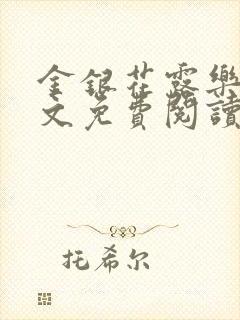 金銀花露樂
文免費閱讀
托希尔